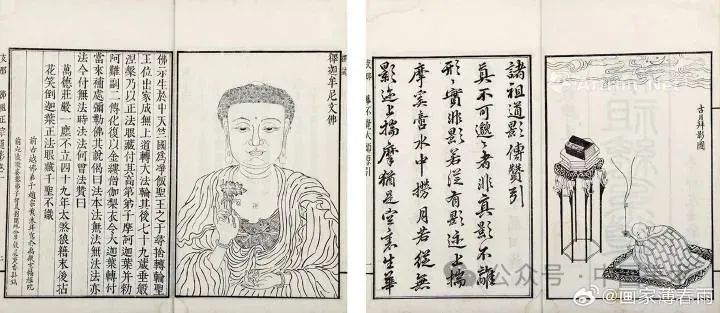 釋迦牟尼文佛
佛示生於中天竺國為淨飯聖王之子尋捨轉輪聖
王位出家成無上道轉大法輪其後七十九歲垂般
涅槃乃以正法眼藏付其高弟子摩訶迦葉并勅
阿難副二傳化復以金縷僧伽棃衣令大迦葉轉付
當來補處彌勒佛其說偈曰法本法無法無法法亦
法今付無法時法法何曾法贊曰
萬德莊嚴一塵不立四十九年太煞狼籍末後拈
花笑倒迦葉正法眼藏千聖不識
古月拜影圖
諸祖道影傳贊引
真不可邈邈者非真影不離
形形實非影若從有影迹上揣
摩奚啻水中撈月若從無
影迹上揣摩猶是空裏生華
公众号·中
@画家薄春雨